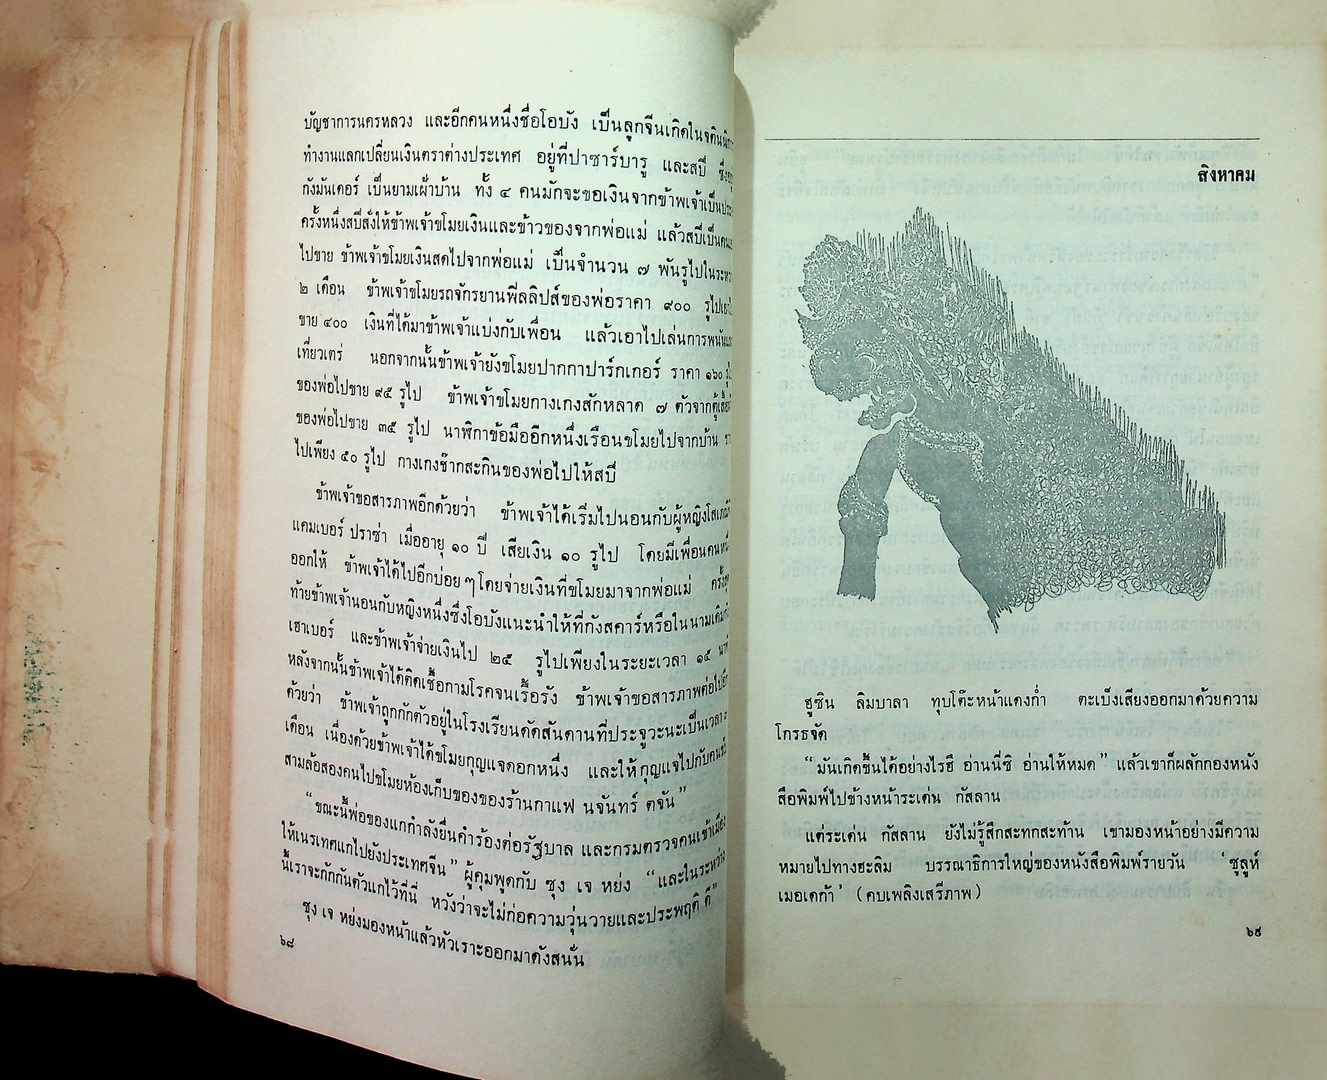 บัญชาการนครหลวง และอีกคนหนึ่งชื่อโอบัง เป็นลูกจีนเกิดใน
ทำงานแลกเปลี่ยนเงินตราต่างประเทศ อยู่ที่ปาซาร์บารู และสบี
กังมันเคอร์ เป็นยามเฝ้าบ้าน ทั้ง ๔ คนมักจะขอเงินจากข้าพเจ้าเป็น
ครั้งหนึ่งสบีสั่งให้ข้าพเจ้าขโมยเงินและข้าวของจากพ่อแม่ แล้วสบีเป็นคน
ไปขาย ข้าพเจ้าขโมยเงินสดไปจากพ่อแม่ เป็นจำนวน ๗ พันรูไปใน
๒ เดือน ข้าพเจ้าขโมยรถจักรยานพีลลิปส์ของพ่อราคา ๙๐๐ รูไป
ขาย ๔๐๐ เงินที่ได้มาข้าพเจ้าแบ่งกับเพื่อน แล้วเอาไปเล่นการพนัน
เที่ยวเตร่ นอกจากนั้นข้าพเจ้ายังขโมยปากกาปาร์กเกอร์ ราคา ๑๖๐
ของพ่อไปขาย ๙๕ รูไป ข้าพเจ้าขโมยกางเกงสักหลาด ๗ ตัวจาก
ของพ่อไปขาย ๓๕ รูไป นาฬิกาข้อมืออีกหนึ่งเรือนขโมยไปจากบ้าน
ไปเพียง ๕๐ รูไป กางเกงช๊ากสะกินของพ่อไปให้สบี
ข้าพเจ้าขอสารภาพอีกด้วยว่า ข้าพเจ้าได้เริ่มไปนอนกับผู้หญิงโสเภณี
แคมเบอร์ ปราซ่า เมื่ออายุ ๑๐ ปี เสียเงิน ๑๐ รูไป โดยมีเพื่อนคน
ออกให้ ข้าพเจ้าได้ไปอีกบ่อยๆโดยจ่ายเงินที่ขโมยมาจากพ่อแม่
ท้ายข้าพเจ้านอนกับหญิงหนึ่งซึ่งโอบังแนะนำให้ที่กังสคาร์หรือในนามเดิม
เฮาเบอร์ และข้าพเจ้าจ่ายเงินไป ๒๕ รูไปเพียงในระยะเวลา ๑๕
หลังจากนั้นข้าพเจ้าได้ติดเชื้อกามโรคจนเรื้อรัง ข้าพเจ้าขอสารภาพต่อไป
ด้วยว่า ข้าพเจ้าถูกกักตัวอยู่ในโรงเรียนดัดสันดานที่ประจูวะนะเป็นเวลา
เดือน เนื่องด้วยข้าพเจ้าได้ขโมยกุญแจดอกหนึ่ง และให้กุญแจไปกับคน
สามล้อสองคนไปขโมยห้องเก็บของของร้านกาแฟ นจันทร์ ตจัน”
“ขณะนี้พ่อของแกกำลังยื่นคำร้องต่อรัฐบาล และกรมตรวจคนเข้าเมือง
ให้เนรเทศแกไปยังประเทศจีน” ผู้คุมพูดกับ ซุง เจ หย่ง “และในระหว่าง
นี้เราจะกักกันตัวแกไว้ที่นี่ หวังว่าจะไม่ก่อความวุ่นวายและประพฤติดี”
ซุง เจ หย่งมองหน้าแล้วหัวเราะออกมาดังสนั่น
๖๘
สิงหาคม
ฮูซิน ลิมบาลา ทุบโต๊ะหน้าแดงก่ำ ตะเบ็งเสียงออกมาด้วยความ
โกรธจัด
“มันเกิดขึ้นได้อย่างไรฮึ อ่านนี่ซิ อ่านให้หมด” แล้วเขาก็ผลักกองหนัง
สือพิมพ์ไปข้างหน้าระเด่น กัสลาน
แต่ระเด่น กัสลาน ยังไม่รู้สึกสะทกสะท้าน เขามองหน้าอย่างมีความ
หมายไปทางฮะลิม บรรณาธิการใหญ่ของหนังสือพิมพ์รายวัน ‘ซุลูห์
เมอเดก้า’ (คบเพลิงเสรีภาพ)
๖๙